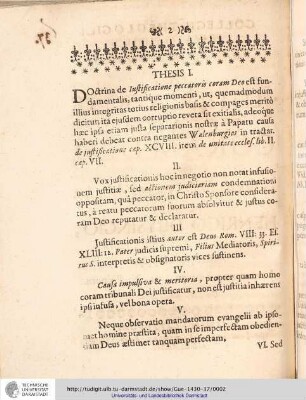 2
THESIS I.
DOctrina de Justificatione peccatoris coram Deo est fun-
damentalis, tantique momenti, ut, quemadmodum
illius integritas totius religionis basis & compages merito
dicitur, ita ejusdem corruptio revera sit exitialis, adeoque
hæc ipsa etiam justa separationis nostræ à Papatu causa
haberi debeat contra negantes Walenburgios in tractat.
de justificatione cap. XCVIII. item de unitate eccles. lib. II.
cap. VII.
II.
Vox justificationis hoc in negotio non notat infusio-
nem justitiæ, sed actionem judiciariam condemnationi
oppositam, quâ peccator, in Christo Sponsore considera-
tus, à reatu peccatorum suorum absolvitur & justus co-
ram Deo reputatur & declaratur.
III
Justificationis istius autor est Deus Rom. VIII: 33. Es.
XLIII: 12. Pater judicis supremi, Filius Mediatoris, Spiri-
tus S. interpretis & obsignatoris vices sustinens.
IV.
Causa impulsiva & meritoria, propter quam homo
coram tribunali Dei justificatur, non est justitia inhærens
ipsi infusa, vel bona opera.
V.
Neque observatio mandatorum evangelii ab ipso-
met homine præstita, quam in se imperfectam obedien-
tiam Deus æstimet tanquam perfectam,
VI. Sed
TECHNISCHE
UNIVERSITÄT
DARMSTADT
http://tudigit.ulb.tu-darmstadt.de/show/Gue-1430-37/0002
Universitäts- und Landesbibliothek Darmstadt